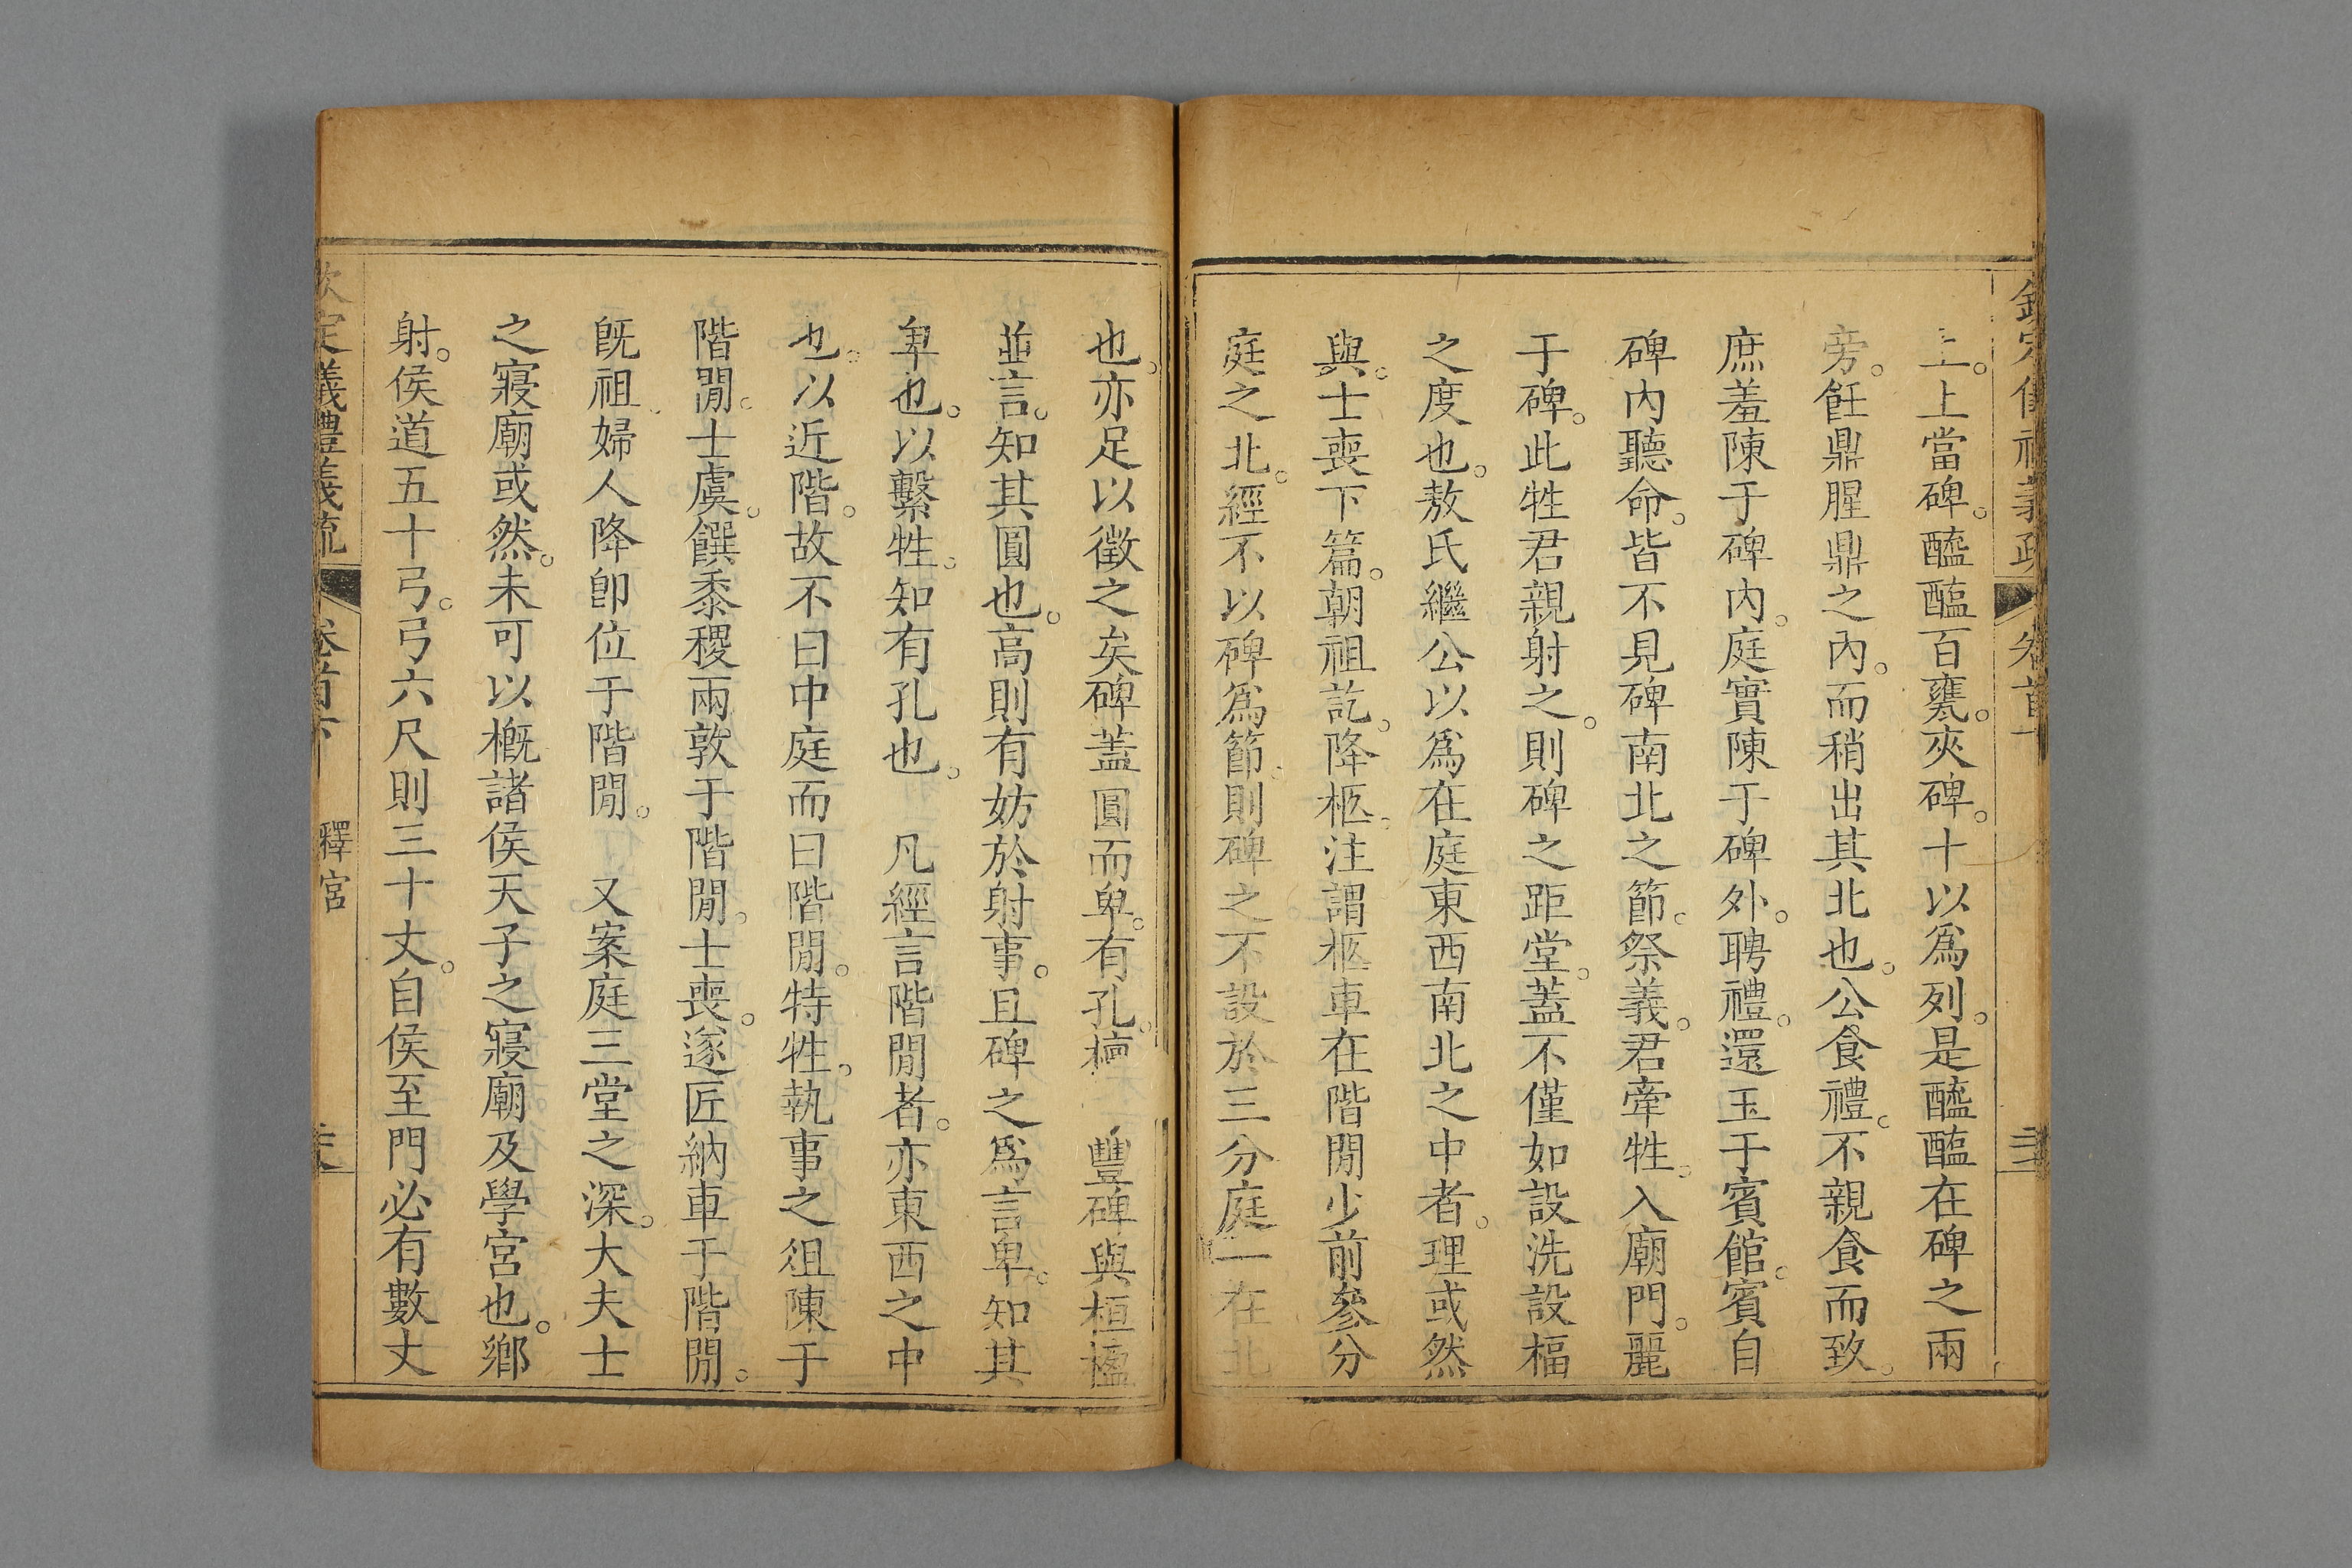 上。上當碑。醯醢百甕。夾碑。十以爲列。是醯醢在碑之兩
旁。飪鼎腥鼎之內。而稍出其北也。公食禮。不親食而致。
庶羞陳于碑內。庭實陳于碑外。聘禮。還玉于賓館。賓自
碑內聽命。皆不見碑南北之節。祭義。君牽牲。入廟門。麗
于碑。此牲君親射之。則碑之距堂。蓋不僅如設洗設楅
之度也。敖氏繼公以爲在庭東西南北之中者。理或然
與。士喪下篇。朝祖訖。降柩。注謂柩車在階閒少前參分
庭之北。經不以碑爲節。則碑之不設於三分庭一在北
也。亦足以徵之矣碑蓋圓而卑。有孔。檀 豐碑與桓楹
並言。知其圓也。高則有妨於射事。且碑之爲言卑。知其
卑也。以繫牲。知有孔也。 凡經言階閒者。亦東西之中
也。以近階。故不曰中庭而曰階閒。特牲。執事之俎陳于
階閒。士虞。饌黍稷兩敦于階閒。士喪。遂匠納車于階閒。
旣祖。婦人降卽位于階閒。 又案庭三堂之深。大夫士
之寢廟或然。未可以槪諸侯天子之寢廟及學宮也。鄉
射。侯道五十弓。弓六尺則三十丈。自侯至門必有數丈
欽定儀禮義疏 卷首下 釋宮